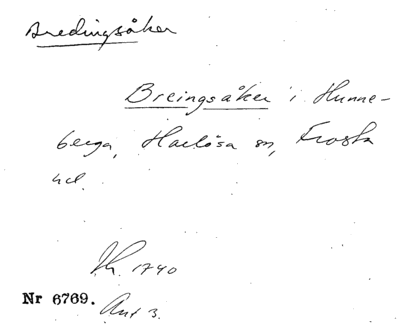 Bredingsåker
Breingsåker i Hunne-
berga, Harlösa sn, Frosta
hd.
Jh. 1740
Nr 6769.
Ant 3.